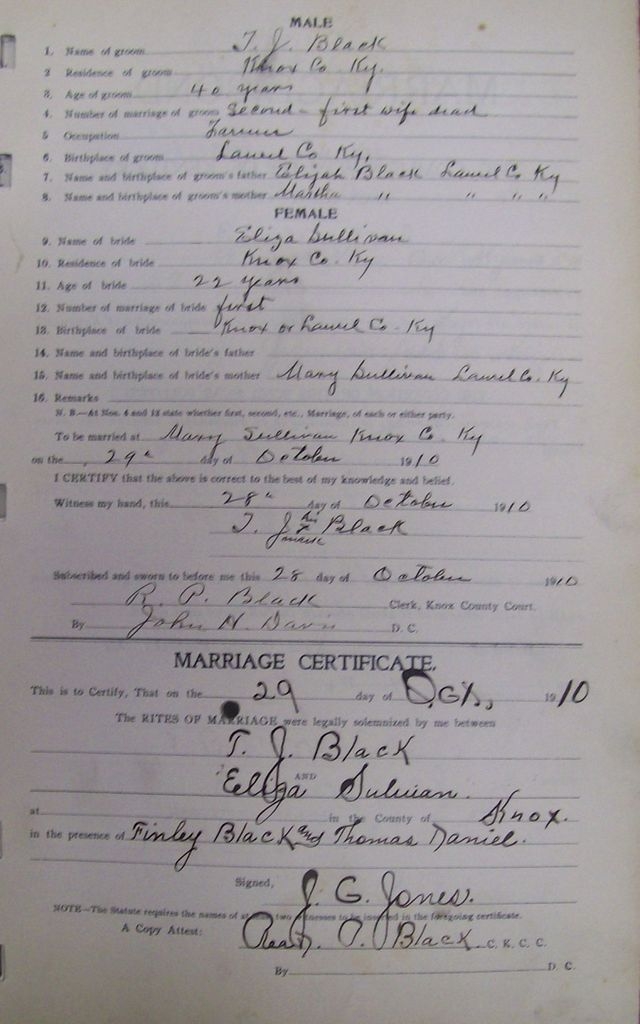 MALE
1. Name of groom T. J. Black
2 Residence of groom Knox Co. Ky.
3. Age of groom 40 years
4. Number of marriage of groom Second - first wife dead
5 Occupation Farmer
6. Birthplace of groom Laurel Co Ky.
7. Name and birthplace of groom's father Elijah Black Laurel Co Ky
8. Name and birthplace of groom's mother Martha " " " "
FEMALE
9. Name of bride Eliza Sullivan
10. Residence of bride Knox Co. Ky
11. Age of bride 22 years
12. Number of marriage of bride first
13. Birthplace of bride Knox or Laurel Co. Ky
14. Name and birthplace of bride's father
15. Name and birthplace of bride's mother Mary Sullivan Laurel Co. Ky
16. Remarks
N. B.—At Nos. 4 and 12 state whether first, second, etc., Marriage, of each or either party.
To be married at Mary Sullivan Knox Co. Ky
on the 29" day of October 1910
I CERTIFY that the above is correct to the best of my knowledge and belief.
Witness my hand, this 28" day of October 1910
T. J. his x mark Black
Subscribed and sworn to before me this 28 day of October 1910
R. P. Black Clerk, Knox County Court.
By John H. Davis D. C.
MARRIAGE CERTIFICATE.
This is to Certify, That on the 29 day of Oct., 1910
The RITES OF MARRIAGE were legally solemnized by me between
T. J. Black
AND
Eliza Sulivan.
at in the County of Knox.
in the presence of Finley Black and Thomas Daniel.
Signed, J. G. Jones.
NOTE—The Statute requires the names of at two witnesses to be inserted in the foregoing certificate.
A Copy Attest: P. Black C. K. C. C.
By D. C.